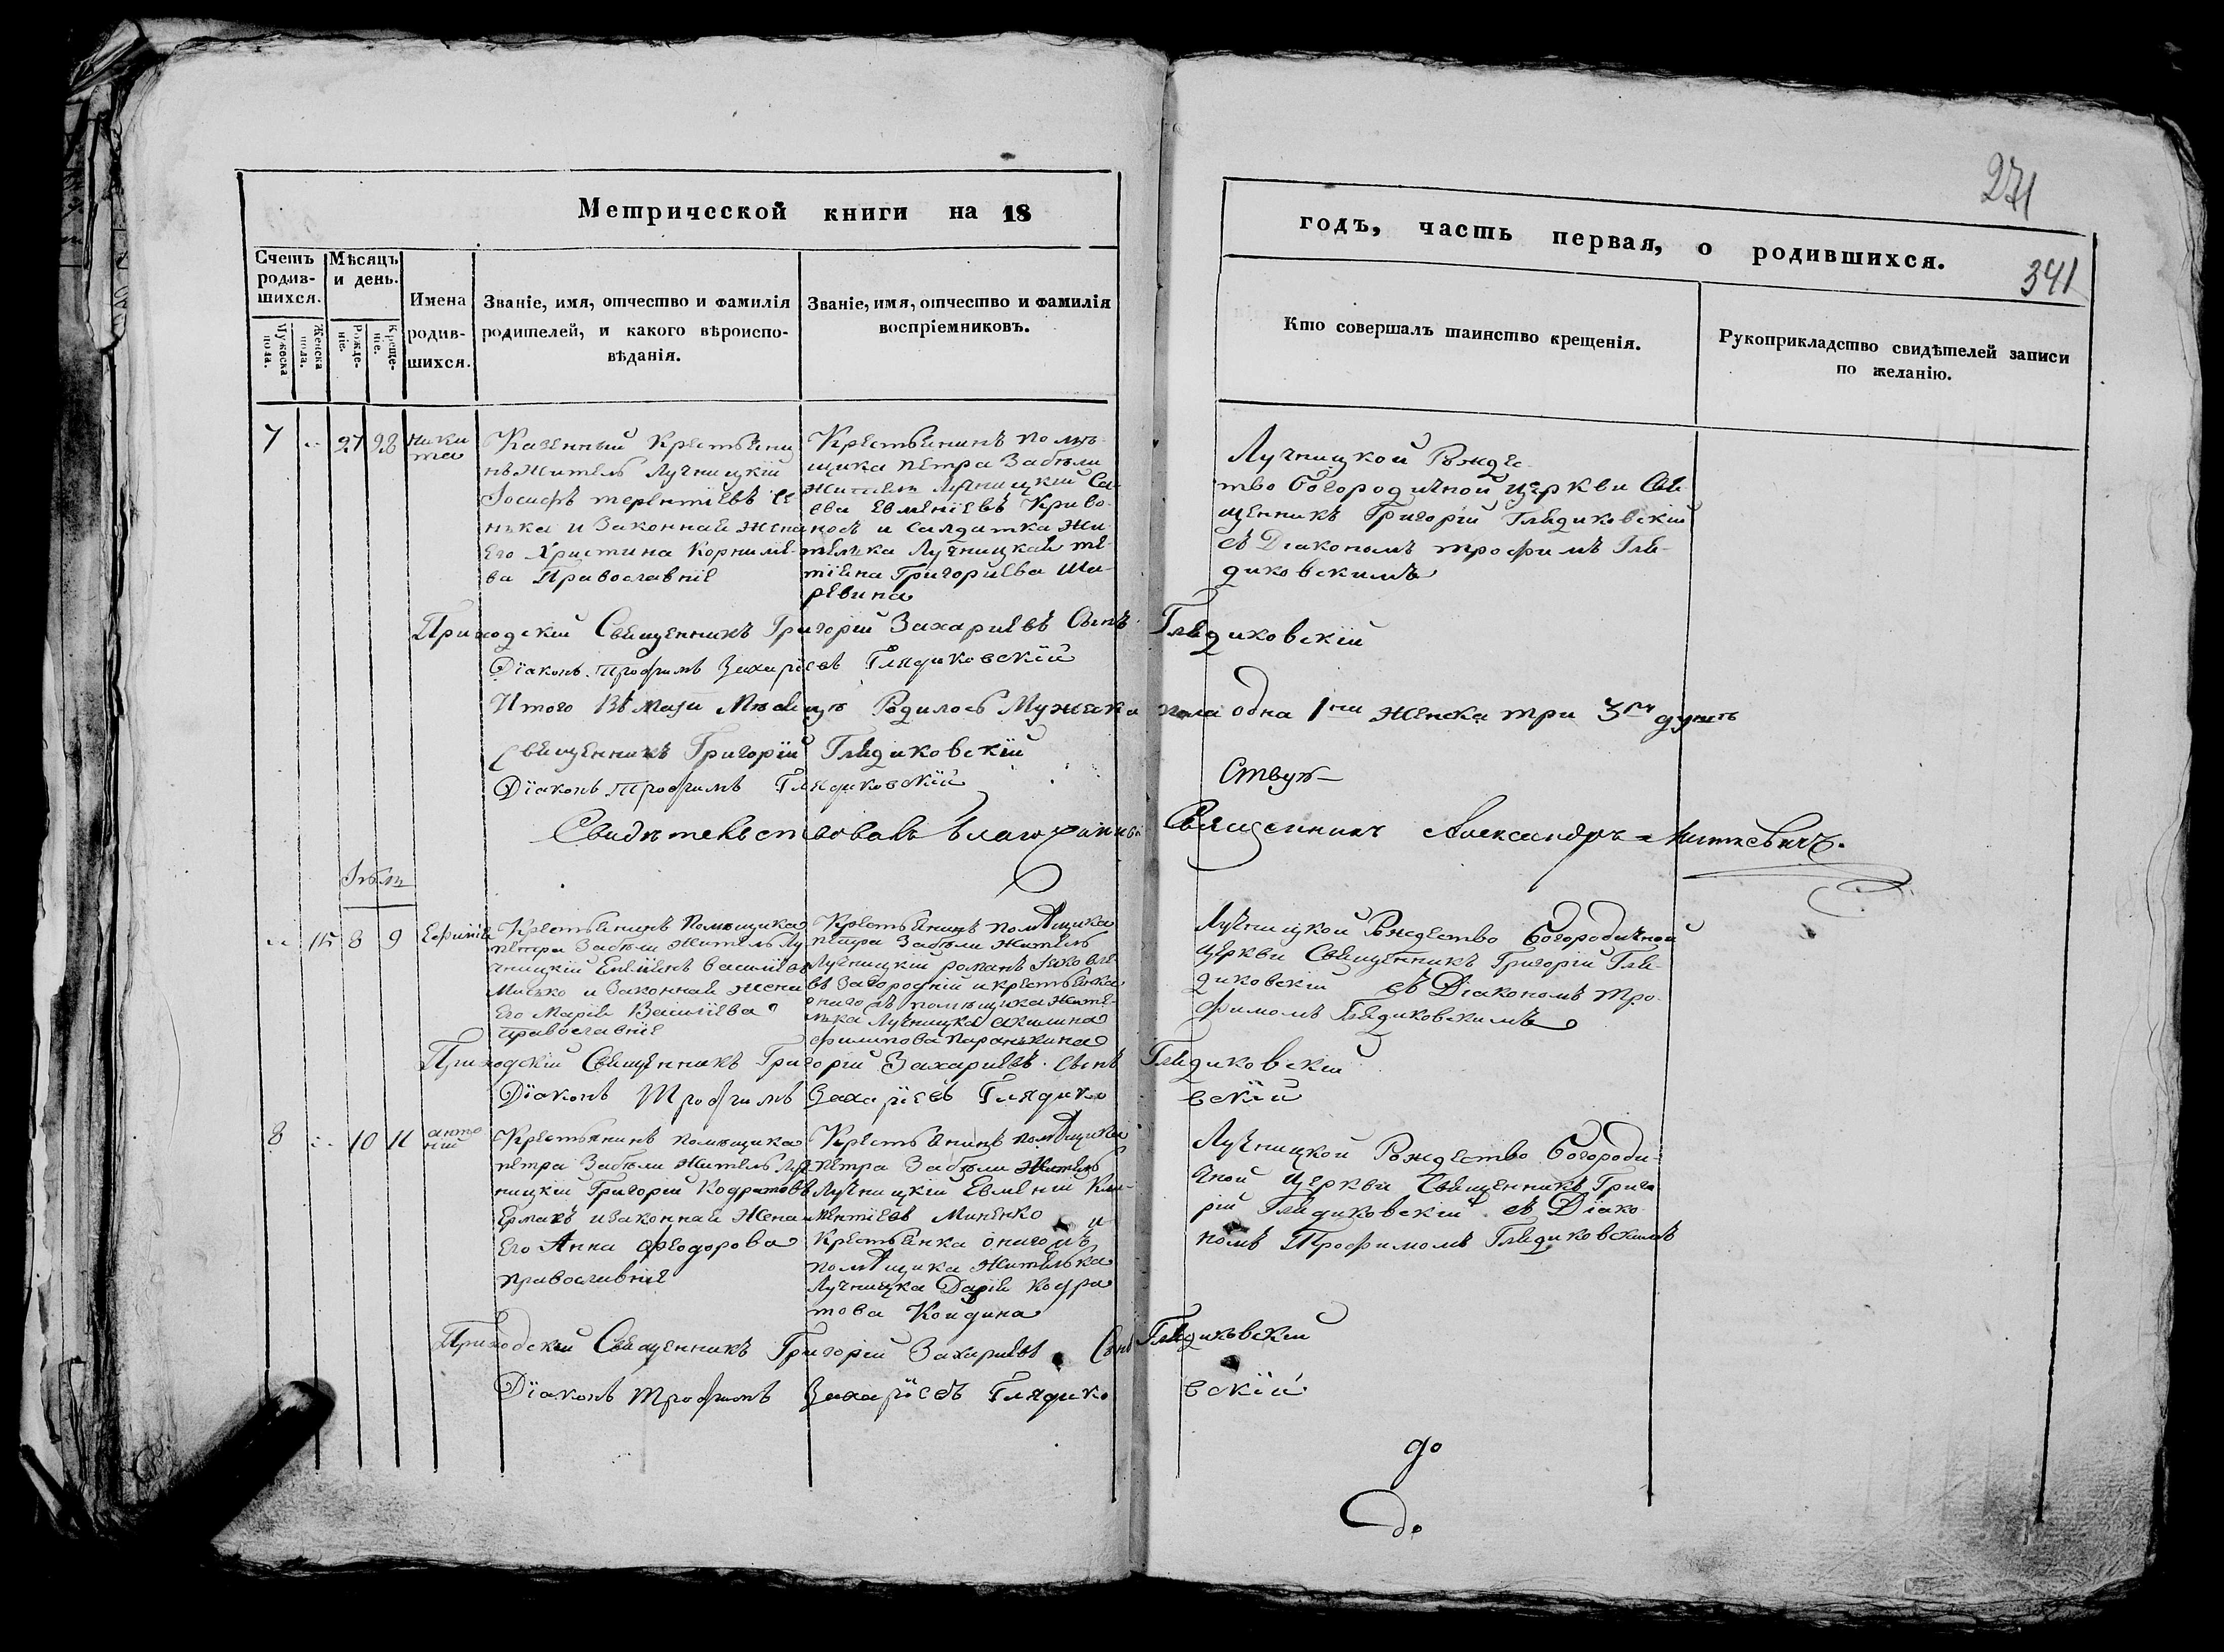 271
Метрической книги на 18
годъ, часть первая, о родившихся.
341
Счетъ родив-шихся.
Мужеска пола.
Женска пола.
Мѣсяцъ и день.
Рожде-ніе.
Креще-ніе.
Имена родив-шихся.
Званіе, имя, отчество и фамилія
родителей, и какого вѣроиспо-
вѣданія.
Званіе, имя, отчество и фамилія
воспріемниковъ.
Кто совершалъ таинство крещенія.
Рукоприкладство свидѣтелей записи
по желанію.
7 27 28
Ники
та
Казенный Крестьяни
нъ житель Лучницкій
Іосифъ терентіевъ Се
нька и Законная жена
Его Христина Корниліе-
ва Православніе
Крестьянинъ помѣ-
щика петра Забѣли
житель Лучницкій Са-
ева Евменіевъ Криво-
носъ и Салдатка жи-
телька Лучницкая те-
тіяна Григориева Ша-
ревина
Лучницкой Рождес-
тво Богородичной церкви Свя
щенникъ Григорій Глядиковскій
съ Діакономъ трофимъ Гля-
диковскимъ
Приходскій Священникъ Григорій Захаріевъ Сынъ Глядиковскій
Діаконъ Трофимъ Захаріевъ Глядиковскій
Итого Въ маіи Мѣсяцѣ Родилось Мужеска пола одна 1на Женска три 3ри душъ
Священникъ Григорій Глядиковскій
Діаконъ Трофимъ Глядиковскій
Свидѣтельствовалъ благочинный Священникъ Александръ
Іюль
15 8 9
Ефимія
Крестьянинъ Помѣщика
петра Забѣли житель Лу
чницкій Евѳимъ Василіевъ
Мисько и Законная жена
Его Марія Василіева
православніе
Крестьянинъ помѣщика
петра Забѣли житель
Лучницкій романъ Яковле
въ Загородній и крестьянка
оного жъ помѣщика жите
лька Лучницка Акилина
филипова Паранькина
Лучницкой Рождество Богородичной
церкви Священникъ Григорій Гля-
диковскій съ Діакономъ Тро-
фимомъ Глядиковскимъ
Приходскій Священникъ Григорій Захаріевъ сынъ Глядиковскій
Діаконъ Трофимъ Захаріевъ Глядиковскій
8 10 11
анто
ній
Крестьянинъ помѣщика
петра Забѣли житель Луч
ницкій Григорій Кодратовъ
Ермакъ и законная жена
Его Анна Феодорова
православніе
Крестьянинъ помѣщика
петра Забѣли житель
Лучницкій Евменій Кли-
ментіевъ Миненко и
Крестьянка оного жъ
помѣщика жителька
Лучницка Дарія Кодра
това Койдина
Лучницкой Рождество Богороди-
чной церкви Священникъ Григо
рій Глядиковскій съ Діако
номъ Трофимомъ Глядиковскимъ
Приходскій Священникъ Григорій Захаріевъ Сынъ Глядиковскій
Діаконъ Трофимъ Захаріевъ Глядиковскій
до